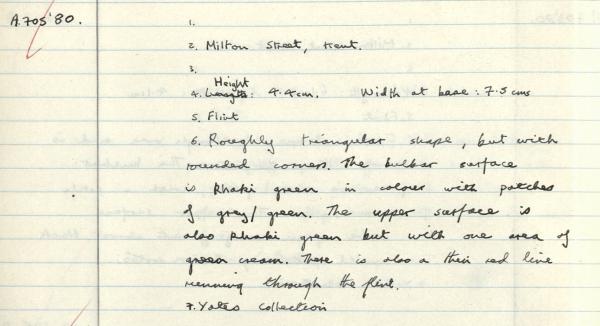 A.705'80.
1.
2. Milton Street, Kent.
3.
Height
4. Length: 4.4cm. Width at base: 7.5 cms
5. Flint
6. Roughly triangular shape, but with
rounded corners. The bulbar surface
is Khaki green in colour with patches
of grey/green. The upper surface is
also Khaki green but with one area of
green cream. There is also a thin red line
running through the flint.
7. Yates collection